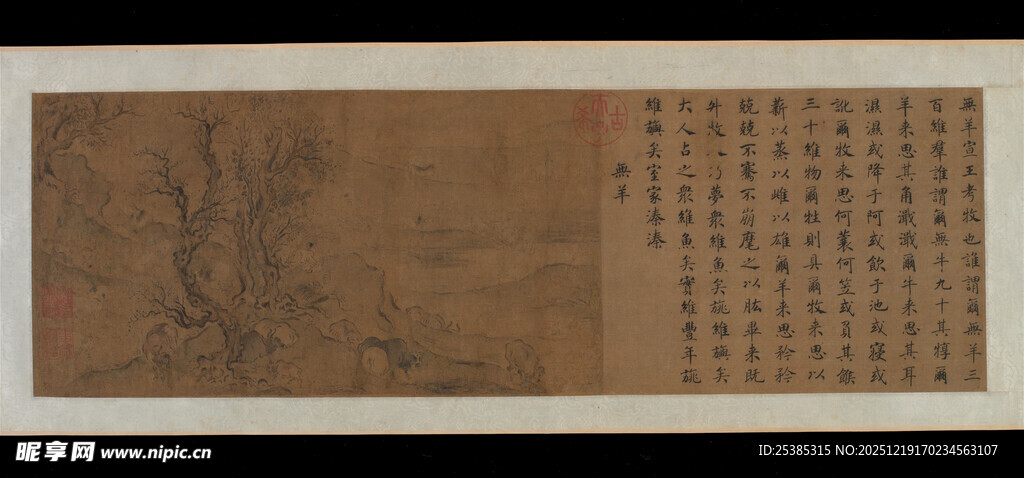 無羊宣王考牧也誰謂爾無羊三
百維羣誰謂爾無牛九十其犉爾
羊來思其角濈濈爾牛來思其耳
濕濕或降于阿或飲于池或寢或
訛爾牧來思何蓑何笠或負其餱
三十維物爾牲則具爾牧來思以
薪以蒸以雌以雄爾羊來思矜矜
兢兢不騫不崩麾之以肱畢來既
升牧人乃夢衆維魚矣旐維旟矣
大人占之衆維魚矣實維豐年旐
維旟矣室家溱溱
無羊
昵享网 www.nipic.cn
ID:25385315 NO:20251219170234563107